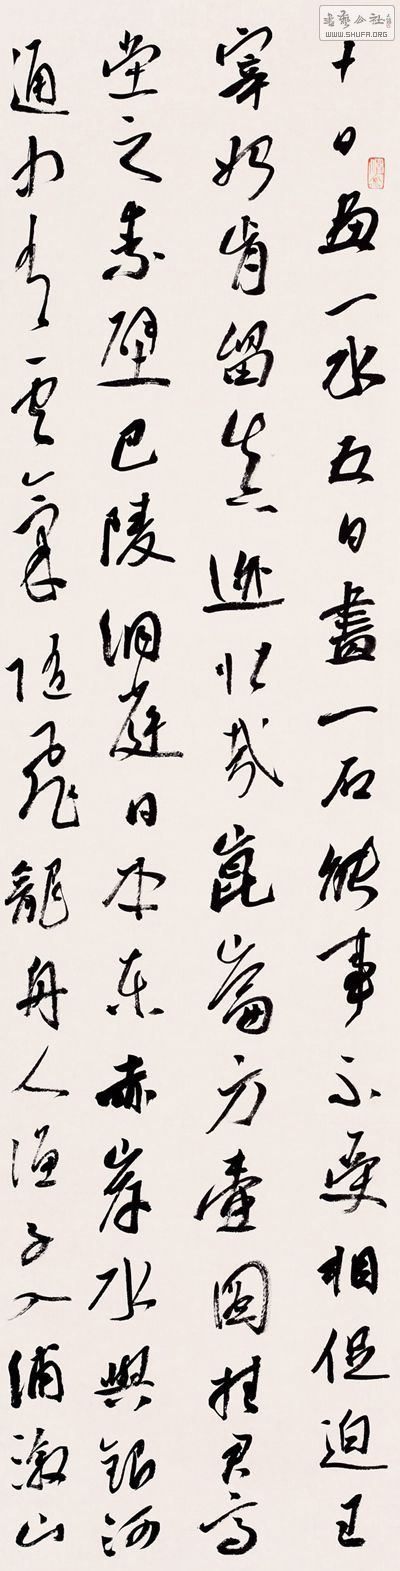 十日畫一水五日畫一石能事不受相促迫王
宰始肯留真迹壯哉崑崙方壺圖挂君高
堂之素壁巴陵洞庭日本東赤岸水與銀河
通中有雲氣隨飛龍舟人漁子入浦漵山
書藝公社
WWW.SHUFA.ORG